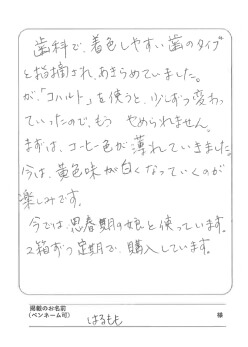 歯科で、着色しやすい歯のタイプ
と指摘され、あきらめていました。
が、「コハルト」を使うと、少しずつ変わっ
ていったので、もう やめられません。
まずは、コーヒー色が薄れていきました
今は、黄色味が白くなっていくのが
楽しみです。
今では、思春期の娘と使っています。
2箱ずつ定期で、購入しています。
掲載のお名前
(ペンネーム可) はるもも 様